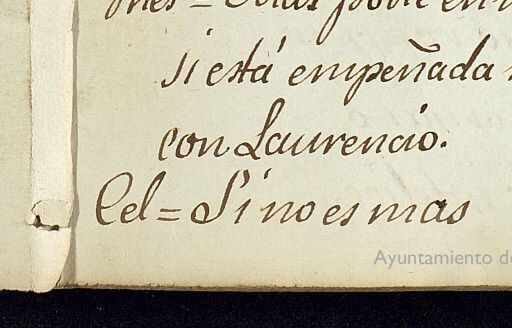 si está empeñada
con Laurencio.
Cel= Si no es mas
Ayuntamiento de